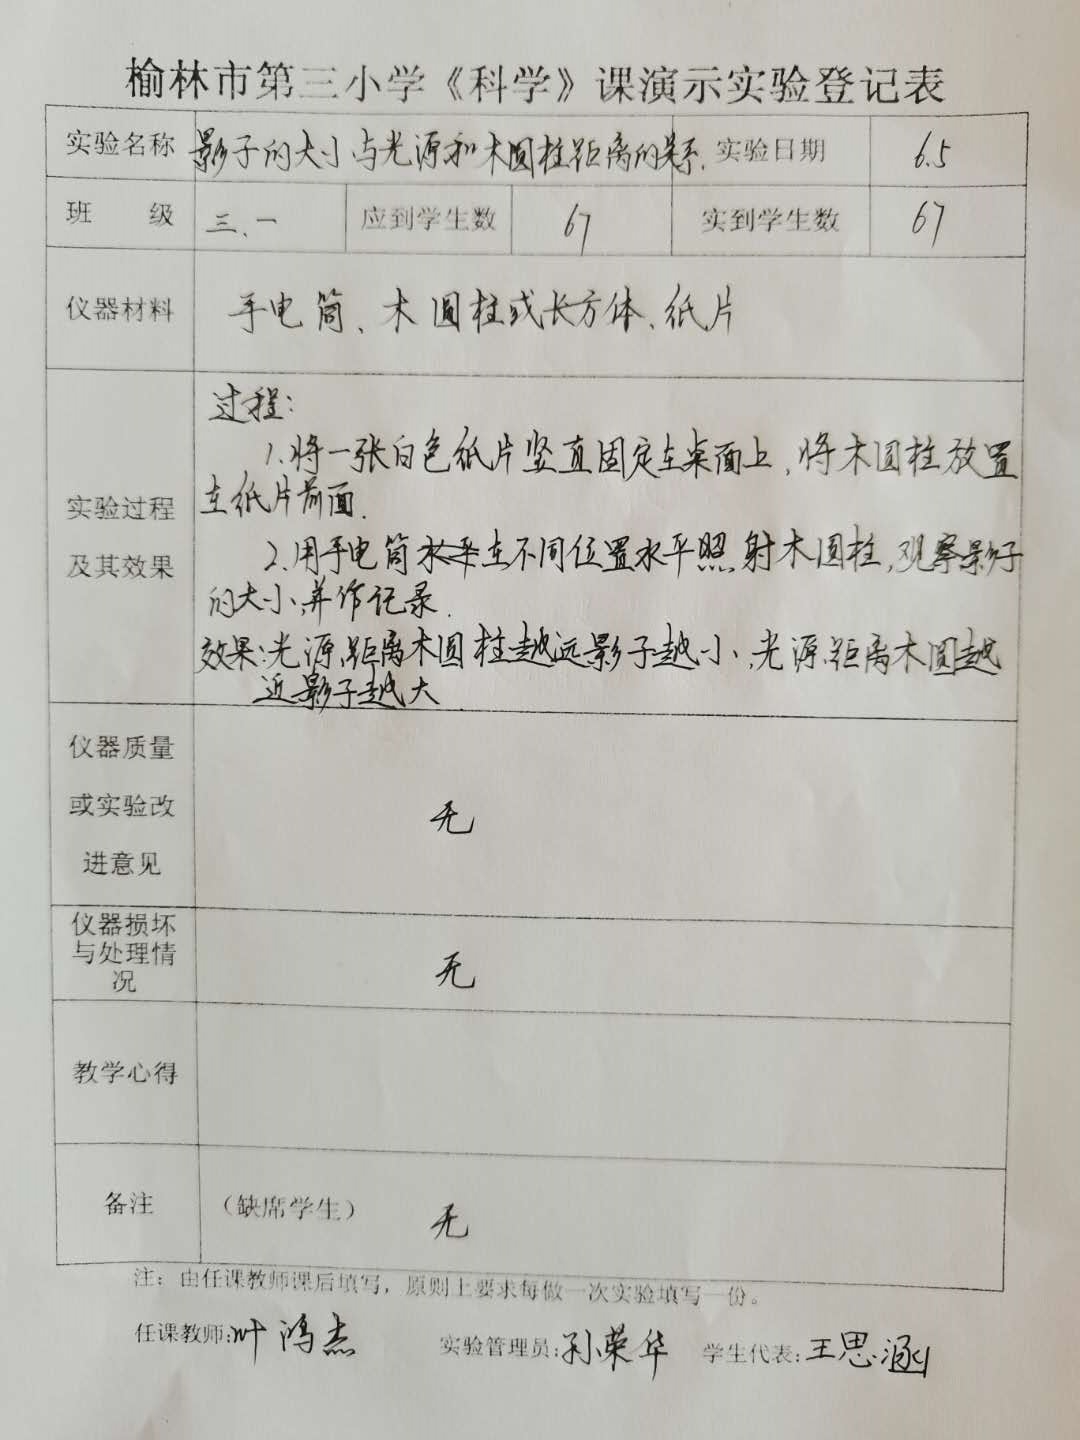 榆林市第三小学《科学》课演示实验登记表
实验名称 影子的大小与光源和木圆柱距离的关系. 实验日期 6.5
班 级 三、一 应到学生数 67 实到学生数 67
仪器材料 手电筒、木圆柱或长方体、纸片
过程:
1.将一张白色纸片竖直固定在桌面上,将木圆柱放置
在纸片前面.
实验过程
及其效果
2.用手电筒水平在不同位置水平照射木圆柱,观察影子
的大小,并作记录.
效果:光源距离木圆柱越远影子越小,光源距离木圆越
近影子越大
仪器质量
或实验改
进意见
无
仪器损坏
与处理情
况
无
教学心得
备注 (缺席学生) 无
注:由任课教师课后填写,原则上要求每做一次实验填写一份。
任课教师:叶鸿杰 实验管理员:孙荣华 学生代表:王思涵